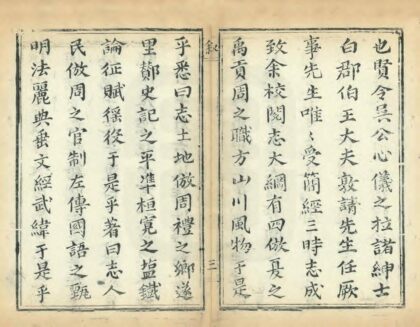 也賢令吳公心儀之拉諸紳士
白郡伯王大夫敦請先生任厥
事先生唯〻受簡經三時志成
致余校閱志大綱有四倣夏之
禹貢周之職方山川風物于是
叙
三
乎悉曰志土地倣周禮之鄉遂
里鄭史記之平準桓寬之塩鐵
論征賦徭役于是乎著曰志人
民倣周之官制左傳國語之甄
明法麗典垂文經武緯于是乎